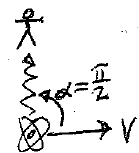 α = π/2
V